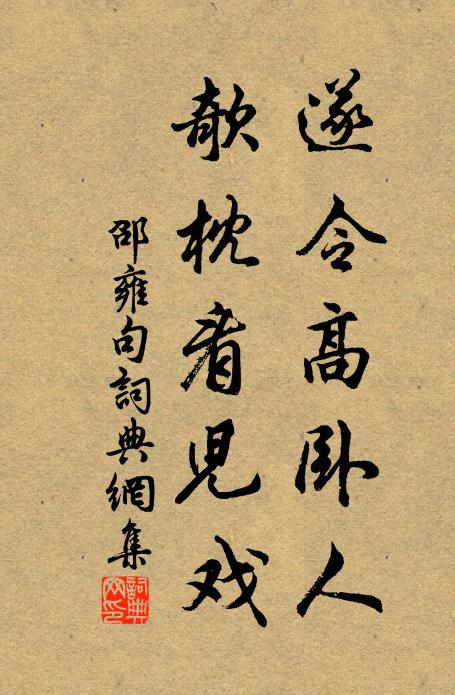 遂令高卧人
欹枕看児戏
邵雍句詞典網集
詞典网印